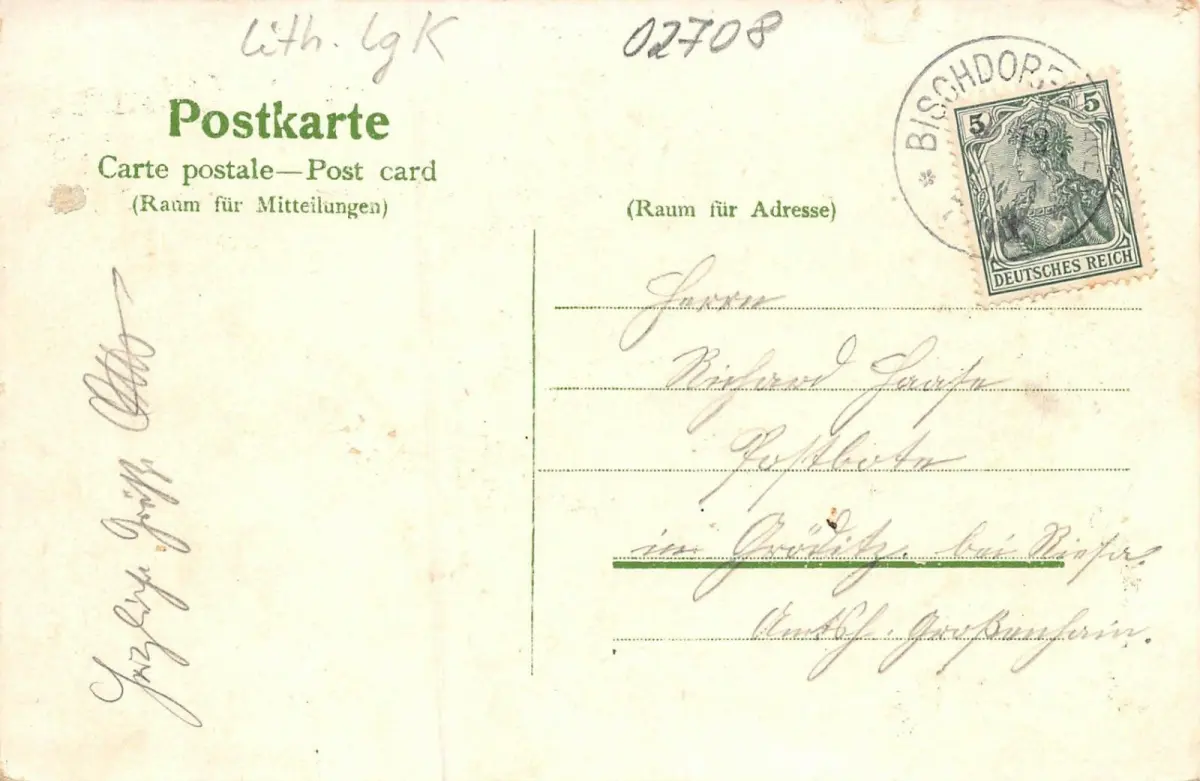 Lith. LgK
02708
Postkarte
Carte postale—Post card
(Raum für Mitteilungen)
(Raum für Adresse)
BISCHDORF
5 5
DEUTSCHES REICH
Herrn
Richard Haase
Postbote
in Gröditz. bei Riesa.
Amtsh. Großenhain.
Herzliche Grüße Otto